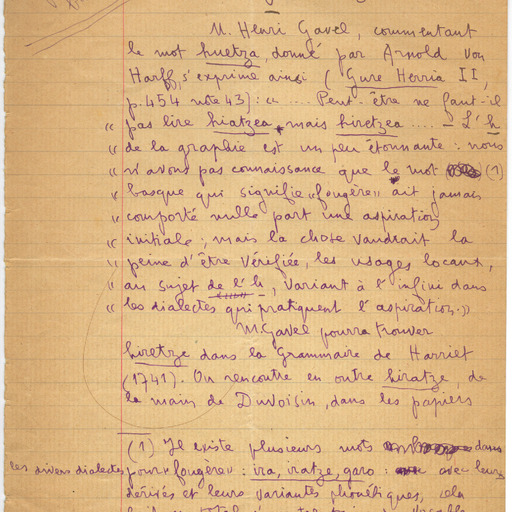 M. Henri Gavel, commentant
le mot huetza, donné par Arnold von
Harff, s'exprime ainsi (Gure Herria II,
p. 454 note 43) : « .... Peut-être ne faut-il
« pas lire hiatzea, mais hiretzea .... — L'h
« de la graphie est un peu étonnante : nous
« n'avons pas connaissance que le mot (1)
« basque qui signifie « fougère » ait jamais
« comporté nulle part une aspiration
« initiale ; mais la chose vaudrait la
« peine d'être vérifiée, les usages locaux,
« au sujet de l'h, variant à l'infini dans
« les dialectes qui pratiquent l'aspiration. »
M. Gavel pourra trouver
hiretze dans la Grammaire de Harriet
(1741). On rencontre en outre hiratze, de
la main de Duvoisin, dans les papiers
(1) Il existe plusieurs mots dans
les divers dialectes pour « fougère » : ira, iratze, garo : avec leurs
dérivés et leurs variantes phonétiques, cela